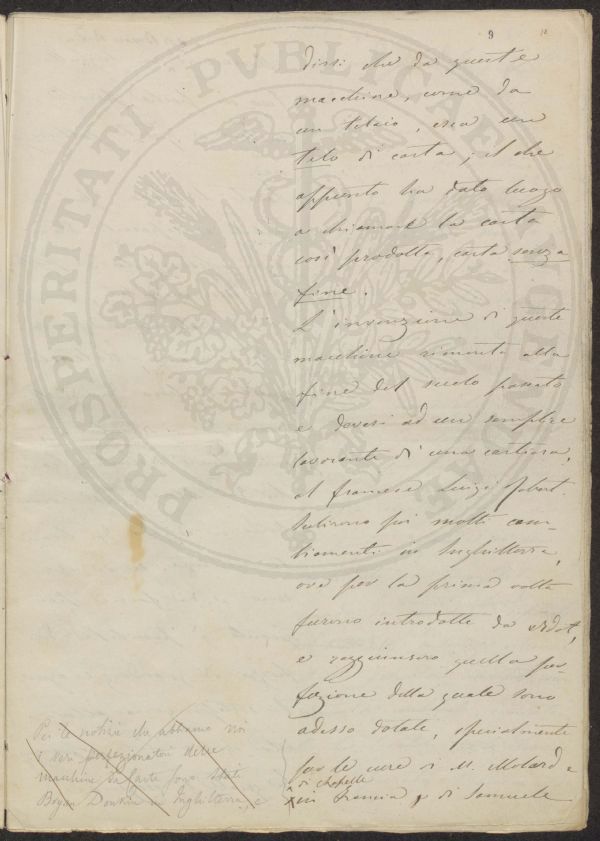 9
dissi che da queste
macchine, come da
un telaio, esca una
tela di carta; il che
appunto ha dato luogo
a chiamare la carta
così prodotta, carta senza
fine.
L'invenzione di queste
macchine rimonta alla
fine del secolo passato
e devesi ad un semplice
lavorante di una cartiera,
al francese Luigi Robert.
Subirono poi molti cam-
biamenti in Inghilterra,
ove per la prima volta
furono introdotte da Didot,
e raggiunsero quella per-
fezione della quale sono
adesso dotate, specialmente
per le cure di M. Molard e
di Chapelle
in Francia, e di Samuele
Per le notizie che abbiamo noi
i veri perfezionatori delle
macchine da carta sono stati
Bryan Donkin in Inghilterra, e
PROSPERITATI PVBLICAE